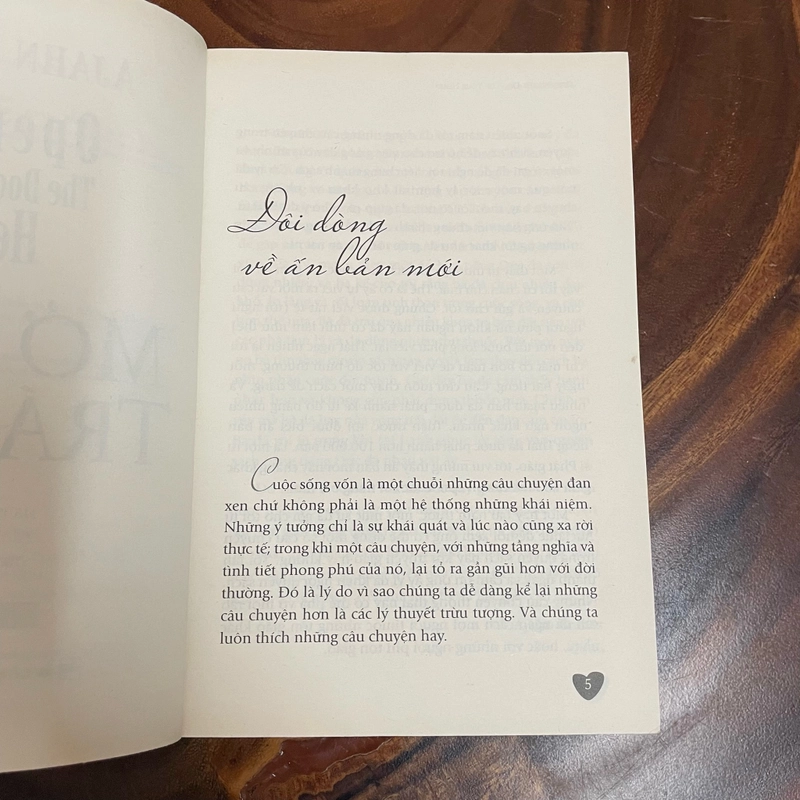 Đôi dòng
về ấn bản mới
Cuộc sống vốn là một chuỗi những câu chuyện đan
xen chứ không phải là một hệ thống những khái niệm.
Những ý tưởng chỉ là sự khái quát và lúc nào cũng xa rời
thực tế; trong khi một câu chuyện, với những tầng nghĩa và
tình tiết phong phú của nó, lại tỏ ra gần gũi hơn với đời
thường. Đó là lý do vì sao chúng ta dễ dàng kể lại những
câu chuyện hơn là các lý thuyết trừu tượng. Và chúng ta
luôn thích những câu chuyện hay.
5